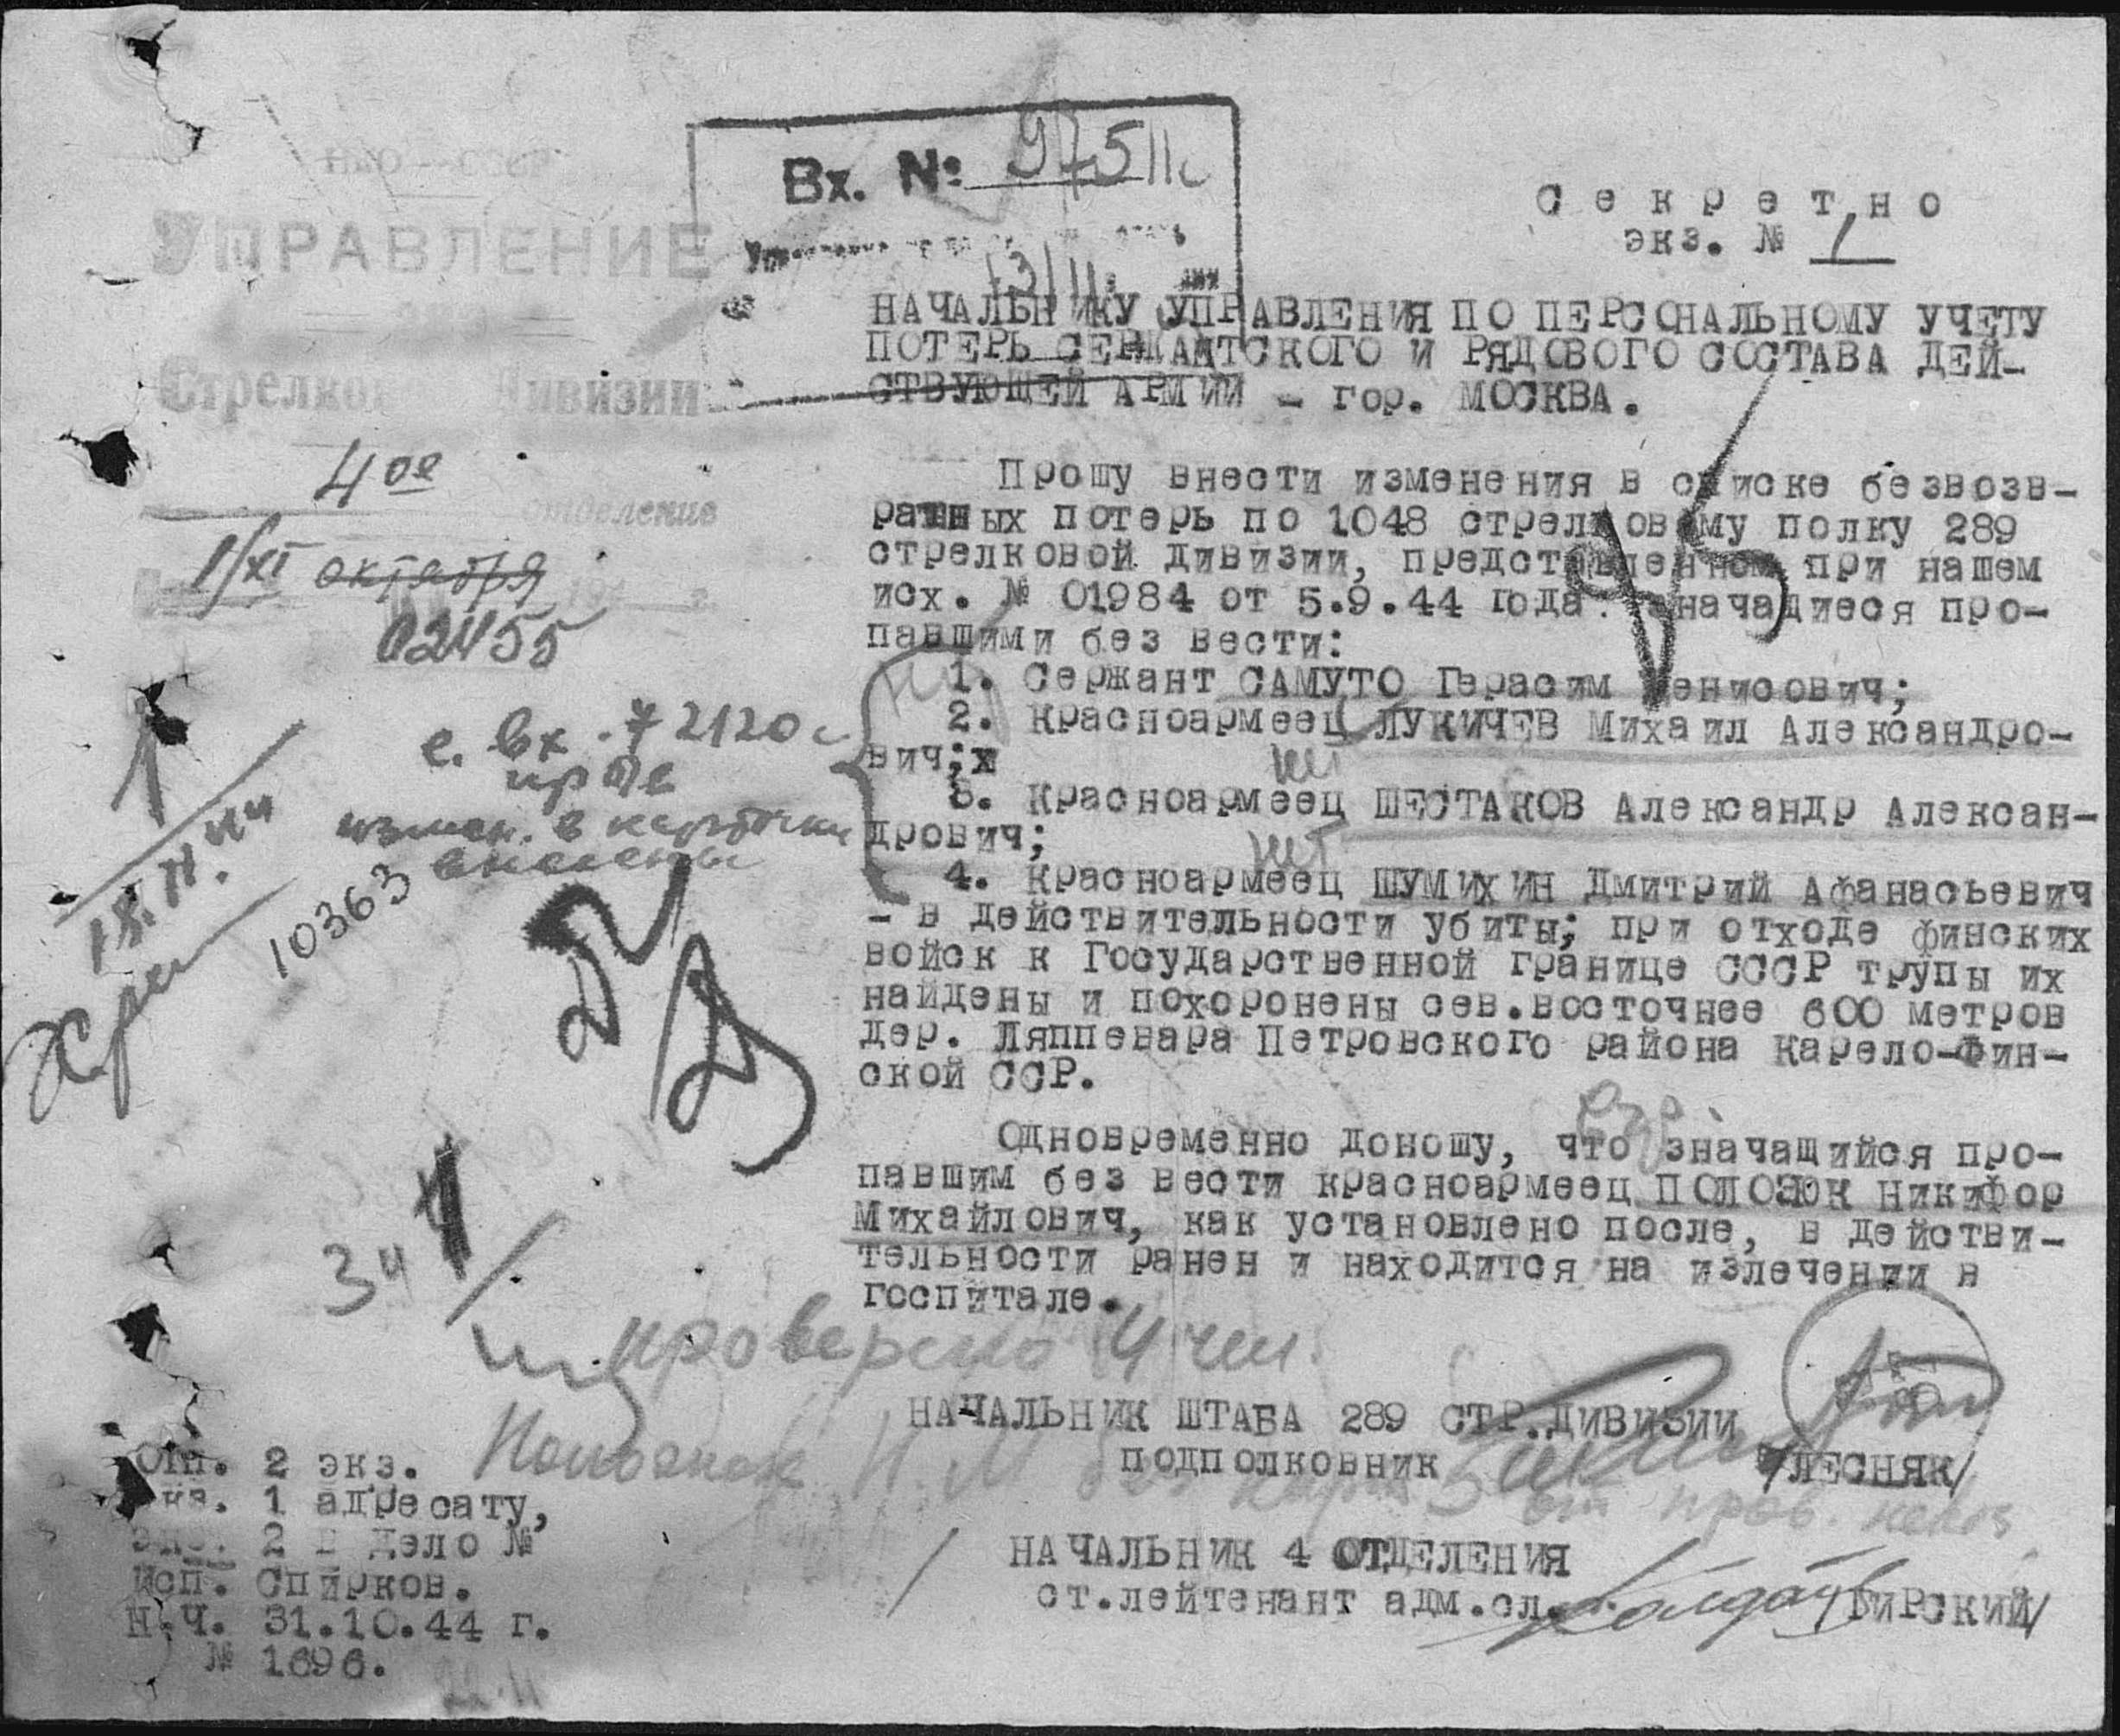 НКО — СССР
УПРАВЛЕНИЕ
Стрелко дивизии
4ое
отделение
1/XI октября 194 г.
02455
Вх. № 97511с
13/11
Секретно
экз. № 1
НАЧАЛЬНИКУ УПРАВЛЕНИЯ ПО ПЕРСОНАЛЬНОМУ УЧЕТУ
ПОТЕРЬ СЕРЖАНТСКОГО И РЯДОВОГО СОСТАВА ДЕЙ-
СТВУЮЩЕЙ АРМИИ - гор. МОСКВА.
Прошу внести изменения в списке безвозв-
ратных потерь по 1048 стрелковому полку 289
стрелковой дивизии, представленном при нашем
исх. № 01984 от 5.9.44 года. значащиеся про-
павшими без вести:
1. Сержант САМУТО Герасим Денисович;
2. Красноармеец ЛУКИЧЕВ Михаил Александро-
вич;х
нет
3. Красноармеец ШЕСТАКОВ Александр Алексан-
дрович;
нет
4. Красноармеец ШУМИХИН Дмитрий Афанасьевич
- в действительности убиты; при отходе финских
войск к Государственной границе СССР трупы их
найдены и похоронены сев.восточнее 600 метров
дер. Ляппевара Петровского района Карело-Фин-
ской ССР.
с. вх. 72120с
измен. в карточки
внесены
18.11.44
10363
Одновременно доношу, что значащийся про-
павшим без вести красноармеец ПОЛОЗЮК Никифор
Михайлович, как установлено после, в действи-
тельности ранен и находится на излечении в
госпитале.
34
проверено 4 чел.
НАЧАЛЬНИК ШТАБА 289 СТР.ДИВИЗИИ
ПОДПОЛКОВНИК /ЛЕСНЯК/
НАЧАЛЬНИК 4 ОТДЕЛЕНИЯ
ст.лейтенант адм.сл. /БИРСКИЙ/
Отп. 2 экз.
экз. 1 адресату,
экз. 2 в дело №
исп. Спирков.
Н.Ч. 31.10.44 г.
№ 1696.
22.11